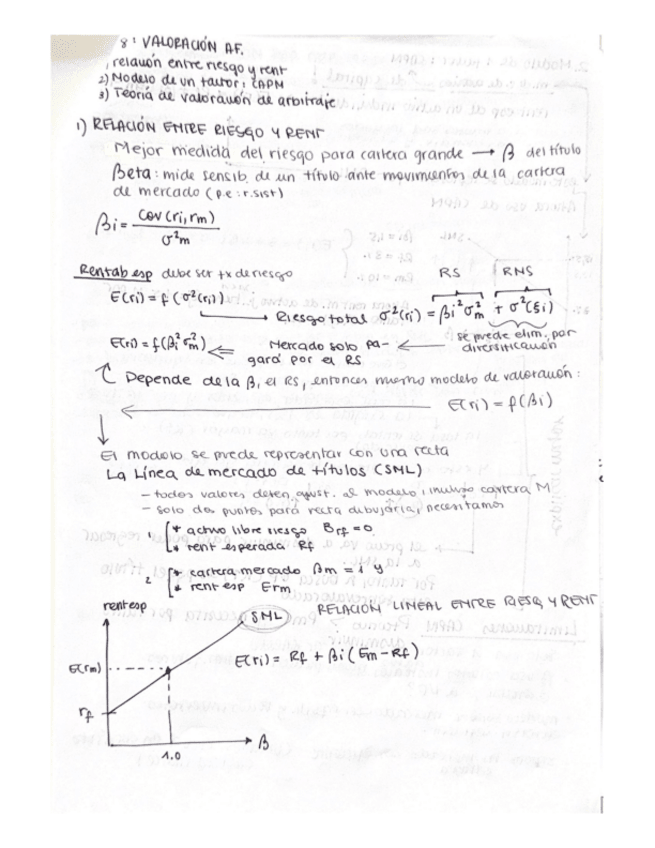 8: VALORACIÓN AF.
, relación entre riesgo y rent
2) Modelo de un factor: CAPM
3) Teoría de valoración de arbitraje
1) RELACIÓN ENTRE RIESGO Y RENT
Mejor medida del riesgo para cartera grande → β del título
Beta: mide sensib. de un título ante movimientos de la cartera
de mercado (p.e: r.sist)
βi = cov(ri, rm) / σ²m
Rentab esp debe ser fx de riesgo
RS RNS
E(ri) = f(σ²(ri))
→ Riesgo total σ²(ri) = βi² σ²m + σ²(ξi)
se puede elim. por
diversificación
E(ri) = f(βi² σ²m) ⇐ Mercado solo pa-
gará por el RS ←
Depende de la β, el RS, entonces mismo modelo de valoración:
← E(ri) = f(βi)
↓
El modelo se puede representar con una recta
La Línea de mercado de títulos (SML)
- todos valores deben ajust. al modelo, incluso cartera M
- solo dos puntos para recta dibujarla, necesitamos
1. * activo libre riesgo Brf = 0
* rent esperada Rf
2 * cartera mercado βm = 1 y
* rent esp Erm
rent esp
SML
RELACIÓN LINEAL ENTRE RIESG Y RENT
E(ri) = Rf + βi (Em - Rf)
E(rm)
rf
β
1.0